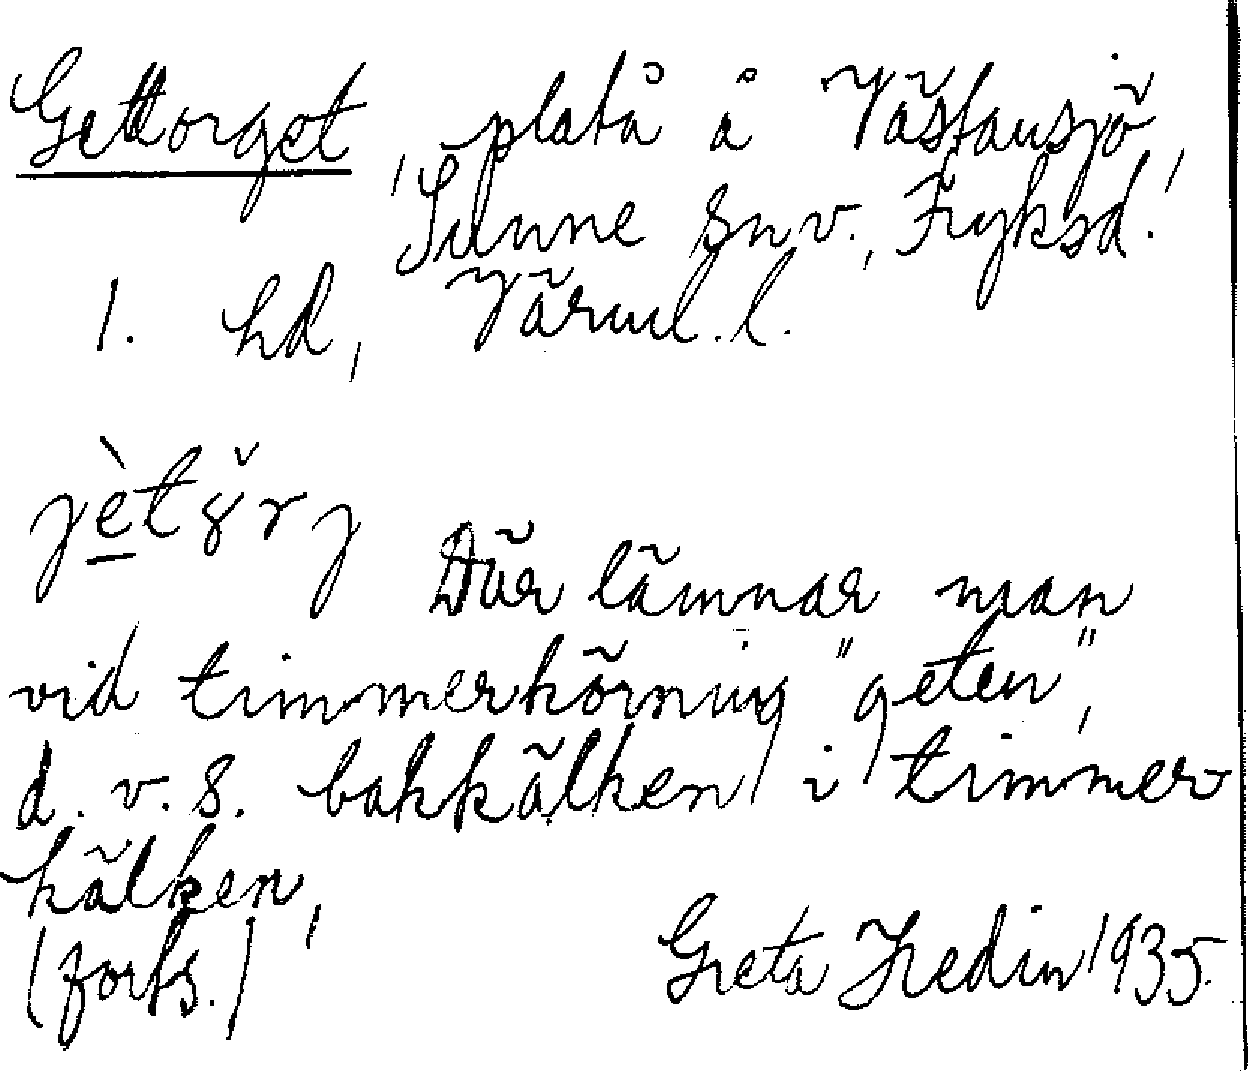 Gettorget, platå å Västansjö,
Sunne snv., Fryksd.
1. hd, Värml. l.
jètx̆rj
Där lämnar man
vid timmerkörning "geten",
d.v.s. bakkälken i timmer
kälken,
(forts.) Greta Hedin 1935.